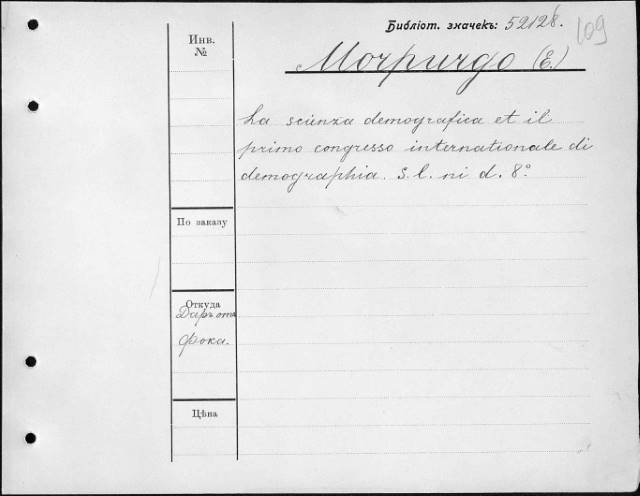 Библіот. значекъ: 52128.
109
Инв.
№
Morpurgo (E.)
La scienza demografica et il
primo congresso internationale di
demographia. S. l. ni d. 8°.
По заказу
Откуда
Даръ отъ
Фока.
Цѣна